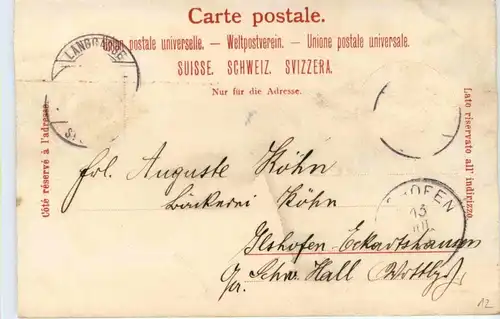 Carte postale.
Union postale universelle. — Weltpostverein. — Unione postale universale.
SUISSE. SCHWEIZ. SVIZZERA.
Nur für die Adresse.
Côté réservé à l'adresse.
Lato riservato all' indirizzo.
LANGGASSE
frl. Auguste Köhn
Bäckerei Köhn
Ilshofen-Eckartshausen
Schw. Hall (Wttbg),
HOFEN
13
JUL
12